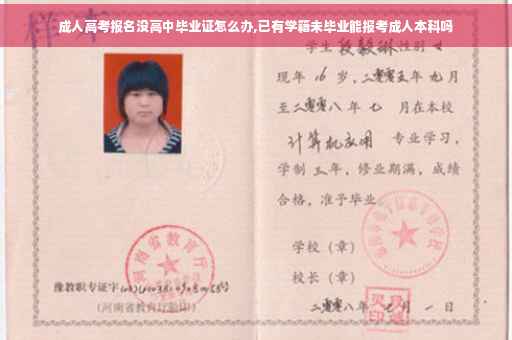 成人高考报名没高中毕业证怎么办,已有学籍未毕业能报考成人本科吗
样本
学生 段毅琳 性别 女
现年 16 岁,二零零五年 九月
至二零零八年 七 月在本校
计算机应用 专业学习,
学制 三年,修业期满,成绩
合格,准予毕业
学校(章)
河南省教育厅
校长(章)
豫教职专证字
(河南省教育厅验印)
二零零八年 一日